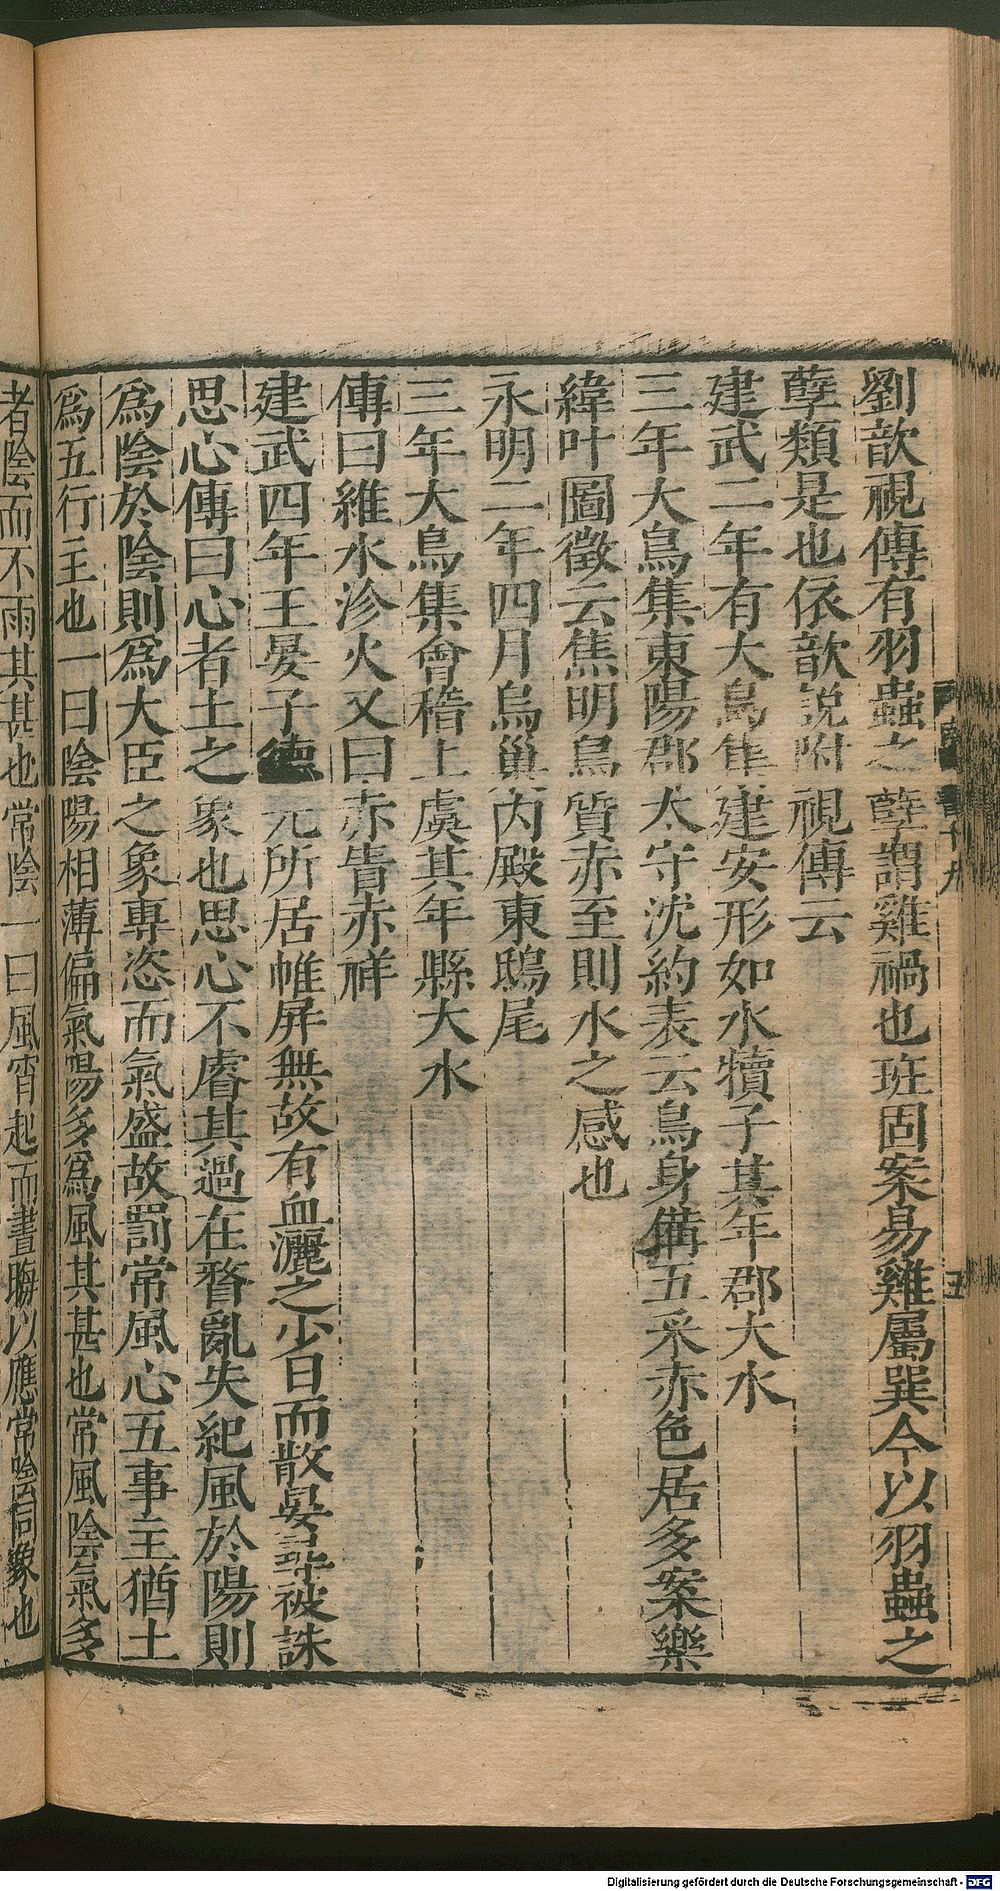 劉歆視傳有羽蟲之孽謂雞禍也班固案易雞屬巽今以羽蟲之
孽類是也依歆說附視傳云
建武二年有大鳥集建安形如水犢子其年郡大水
三年大鳥集東陽郡太守沈約表云鳥身備五采赤色居多案樂
緯叶圖徵云焦明鳥質赤至則水之感也
永明二年四月烏巢內殿東鴟尾
三年大鳥集會稽上虞其年縣大水
傳曰維水沴火又曰赤眚赤祥
建武四年王晏子德元所居帷屏無故有血灑之少日而散晏尋被誅
思心傳曰心者土之象也思心不睿其過在瞀亂失紀風於陽則
為陰於陰則為大臣之象專恣而氣盛故罰常風心五事主猶土
為五行主也一曰陰陽相薄偏氣陽多為風其甚也常風陰氣多
者陰而不雨其甚也常陰一曰風宵起而晝晦以應常陰同象也
Digitalisierung gefördert durch die Deutsche Forschungsgemeinschaft - DFG